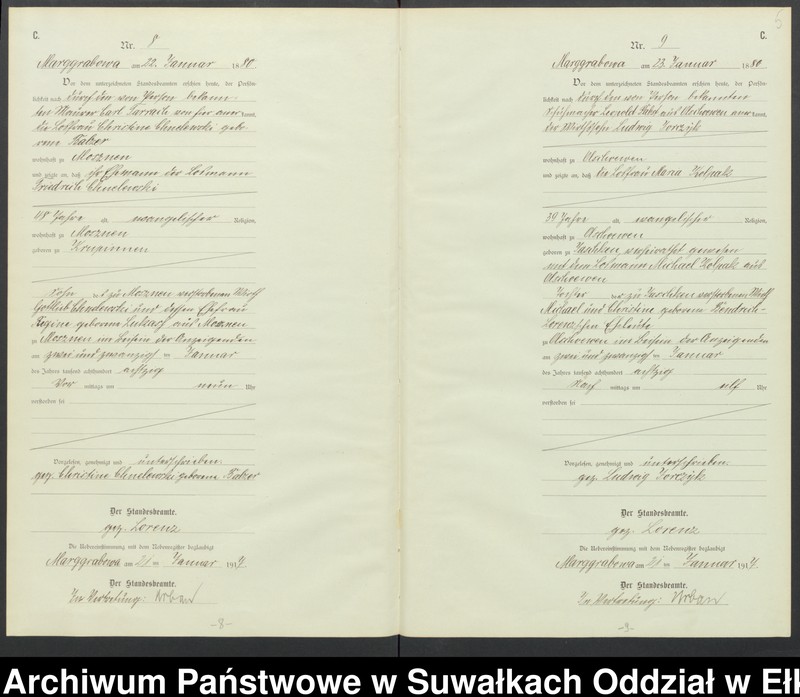 C.
Nr. 8
Marggrabowa am 22. Januar 1880
Vor dem unterzeichneten Standesbeamten erschien heute, der Persön-
lichkeit nach durch den von Person bekann-
ten Maurer Carl von hier aner kannt,
die Losfrau Christine Chudowski gebo-
rene Kalzer
wohnhaft zu Mosznen
und zeigte an, daß ihr Ehemann der Losmann
Friedrich
48 Jahre alt, evangelischer Religion,
wohnhaft zu Mosznen
geboren zu Krupinnen
Sohn des zu Mosznen verstorbenen Wirth
Gottlieb und dessen Ehefrau
Regine geborene aus Mosznen
zu Mosznen im Beisein der Anzeigenden
am zwei und zwanzigsten Januar
des Jahres tausend achthundert achtzig
Vor mittags um neun Uhr
verstorben sei
Vorgelesen, genehmigt und unterschrieben
gez. Christine geborene Kalzer
Der Standesbeamte.
gez. Lorenz
Die Uebereinstimmung mit dem Nebenregister beglaubigt
Marggrabowa am 21 ten Januar 1914.
Der Standesbeamte.
In Vertretung: Urban
-8-
5
C.
Nr. 9
Marggrabowa am 23. Januar 1880
Vor dem unterzeichneten Standesbeamten erschien heute, der Persön-
lichkeit nach durch den von Person bekannten
Leopold aus Olschöwen aner kannt,
der Wirthssohn Ludwig Jorczyk
wohnhaft zu Olschöwen
und zeigte an, daß die Losfrau Maria Kolpak
39 Jahre alt, evangelischer Religion,
wohnhaft zu Olschöwen
geboren zu Jaschken verheirathet gewesen
mit dem Losmann Michael Kolpak aus
Olschöwen
Tochter der zu Jaschken verstorbenen Wirth
Michael und Christine geborene
Eheleute
zu Olschöwen im Beisein des Anzeigenden
am zwei und zwanzigsten Januar
des Jahres tausend achthundert achtzig
Nach mittags um elf Uhr
verstorben sei
Vorgelesen, genehmigt und unterschrieben
gez. Ludwig Jorczyk
Der Standesbeamte.
gez. Lorenz
Die Uebereinstimmung mit dem Nebenregister beglaubigt
Marggrabowa am 21 ten Januar 1914.
Der Standesbeamte.
In Vertretung: Urban
-9-
Archiwum Państwowe w Suwałkach Oddział w Eł